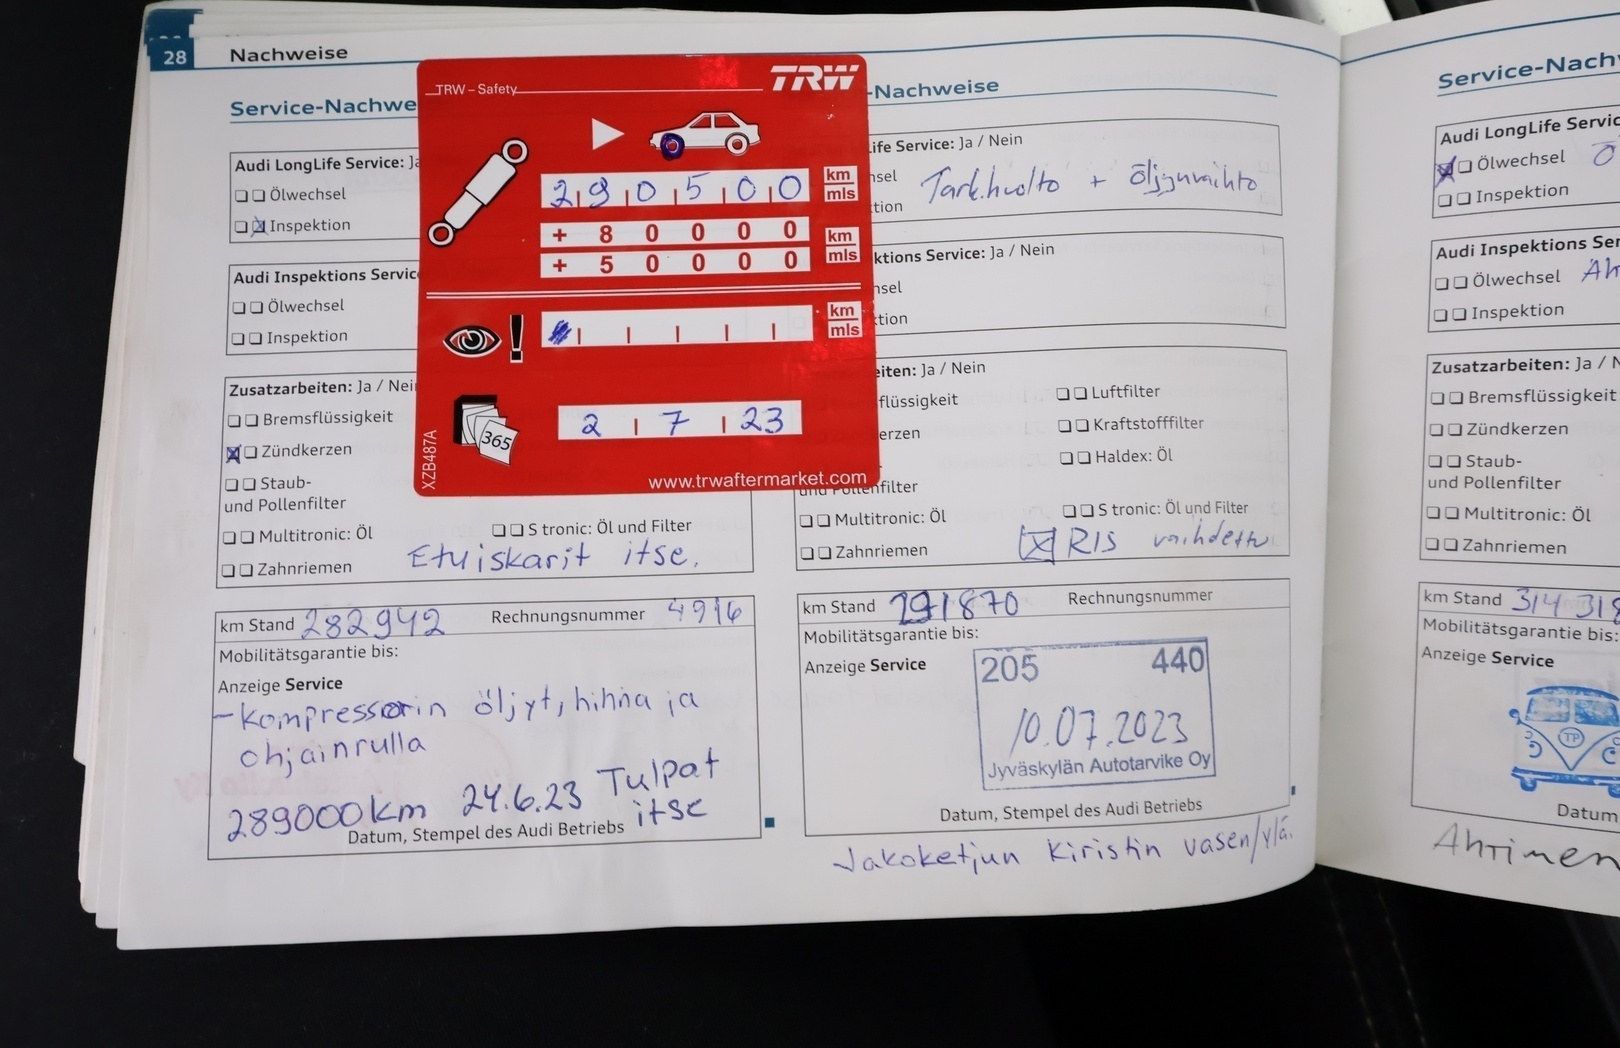 28 Nachweise
Service-Nachwe
Audi LongLife Service: Ja
Ölwechsel
Inspektion
Audi Inspektions Servic
Ölwechsel
Inspektion
Zusatzarbeiten: Ja / Nei
Bremsflüssigkeit
Zündkerzen
Staub-
und Pollenfilter
Multitronic: Öl
S tronic: Öl und Filter
Zahnriemen
Etuiskarit itse.
km Stand 282942 Rechnungsnummer 4916
Mobilitätsgarantie bis:
Anzeige Service
- kompressorin öljyt, hihna ja
ohjainrulla
289000km 24.6.23 Tulpat
itse
Datum, Stempel des Audi Betriebs
TRW - Safety TRW
2 9 0 5 0 0 km
mls
+ 8 0 0 0 0 km
+ 5 0 0 0 0 mls
! km
mls
365 2 7 23
XZB487A
www.trwaftermarket.com
-Nachweise
ife Service: Ja / Nein
hsel
tion
Tark.huolto + öljynvaihto
ktions Service: Ja / Nein
hsel
tion
eiten: Ja / Nein
flüssigkeit
Luftfilter
erzen
Kraftstofffilter
Haldex: Öl
und Pollenfilter
Multitronic: Öl
S tronic: Öl und Filter
Zahnriemen
RIS vaihdettu
km Stand 291870 Rechnungsnummer
Mobilitätsgarantie bis:
Anzeige Service
205 440
10.07.2023
Jyväskylän Autotarvike Oy
Datum, Stempel des Audi Betriebs
Jakoketjun kiristin vasen/ylä.
Service-Nach
Audi LongLife Servic
Ölwechsel Ö
Inspektion
Audi Inspektions Ser
Ölwechsel
Inspektion
Zusatzarbeiten: Ja / N
Bremsflüssigkeit
Zündkerzen
Staub-
und Pollenfilter
Multitronic: Öl
Zahnriemen
km Stand 314318
Mobilitätsgarantie bis:
Anzeige Service
TP
Datum
Ahtimen